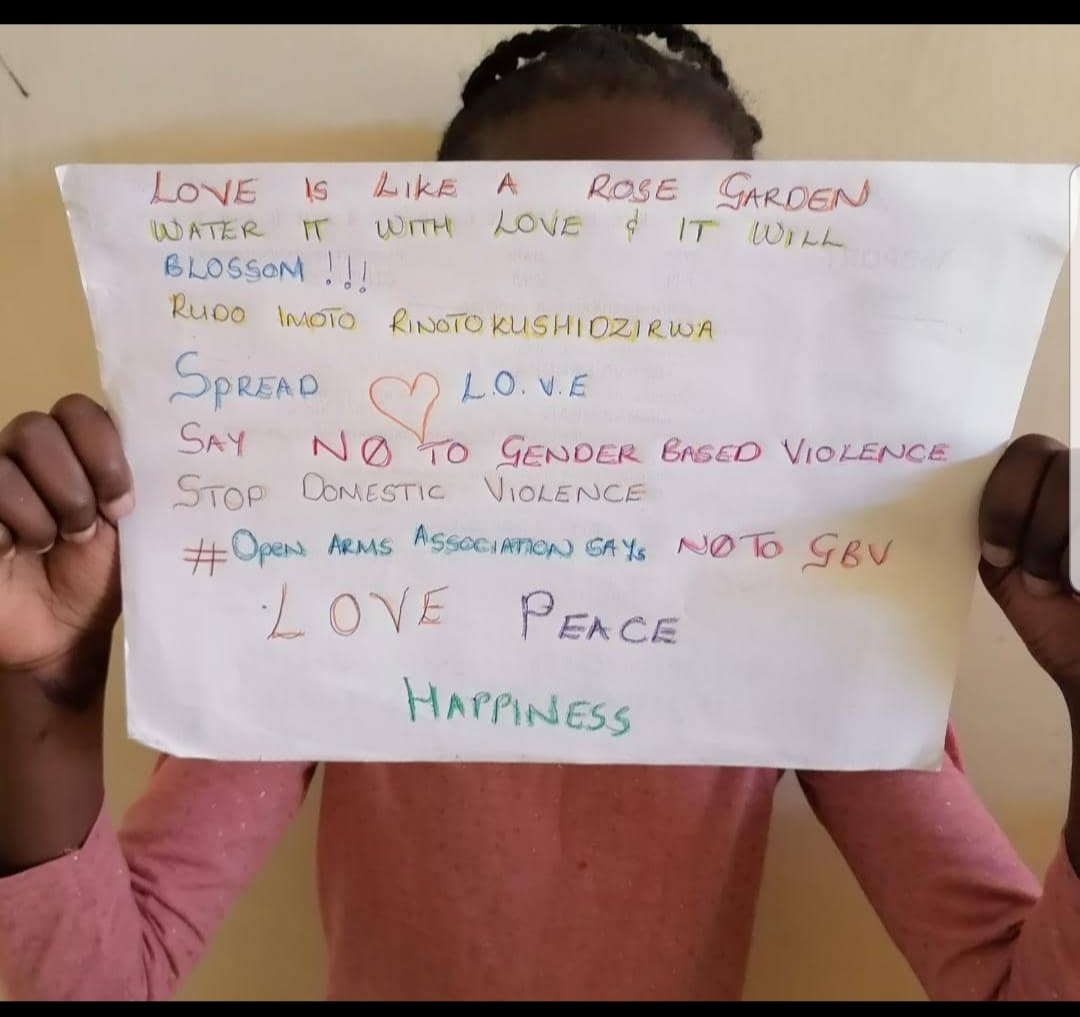 LOVE IS LIKE A ROSE GARDEN
WATER IT WITH LOVE & IT WILL
BLOSSOM !!!
RUDO IMOTO RINOTOKUSHIDZIRWA
SPREAD L.O.V.E
SAY NO TO GENDER BASED VIOLENCE
STOP DOMESTIC VIOLENCE
#OPEN ARMS ASSOCIATION SAYS NO TO GBV
LOVE PEACE
HAPPINESS